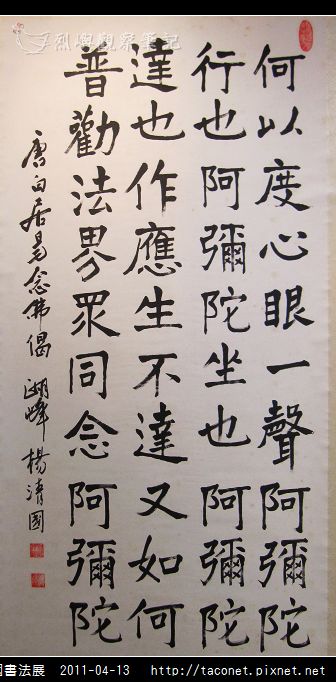 烈嶼觀察筆記
何以度心眼一聲阿彌陀
行也阿彌陀坐也阿彌陀
達也作應生不達又如何
普勸法界眾同念阿彌陀
唐白居易念佛偈 湖峰 楊清國
國書法展 2011-04-13 http://taconet.pixnet.net/